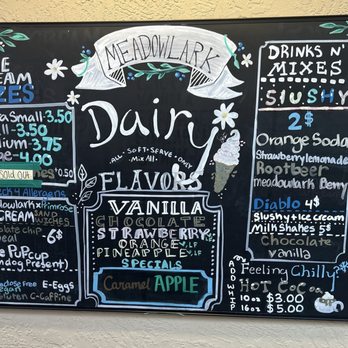 MEADOWLARK
Dairy
ALL SOFT-SERVE ONLY
Mix All
FLAVORS
VANILLA
CHOCOLATE
STRAWBERRY
ORANGE
PINEAPPLE
SPECIALS
Caramel APPLE
CREAM
ZES
Small-3.75
-3.50
-3.75
-4.00
Sold out
0.50
Allergens
CREAM SAND
6$
PUPCUP
dog Present)
E-Eggs
C-Caffine
DRINKS N'
MIXES
SLUSHY
2$
Orange Soda
Strawberry lemonade
Rootbeer
meadowlark Berry
Diablo 4$
Slushy+ice cream
Milkshakes 5$
Chocolate
vanilla
ADD WHIP
Feeling Chilly?
HOT COCOA
10oz $3.00
16oz $5.00